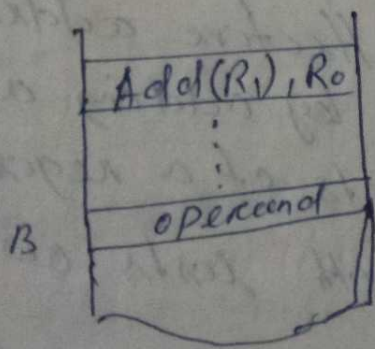 Add(R1), R0
B operand